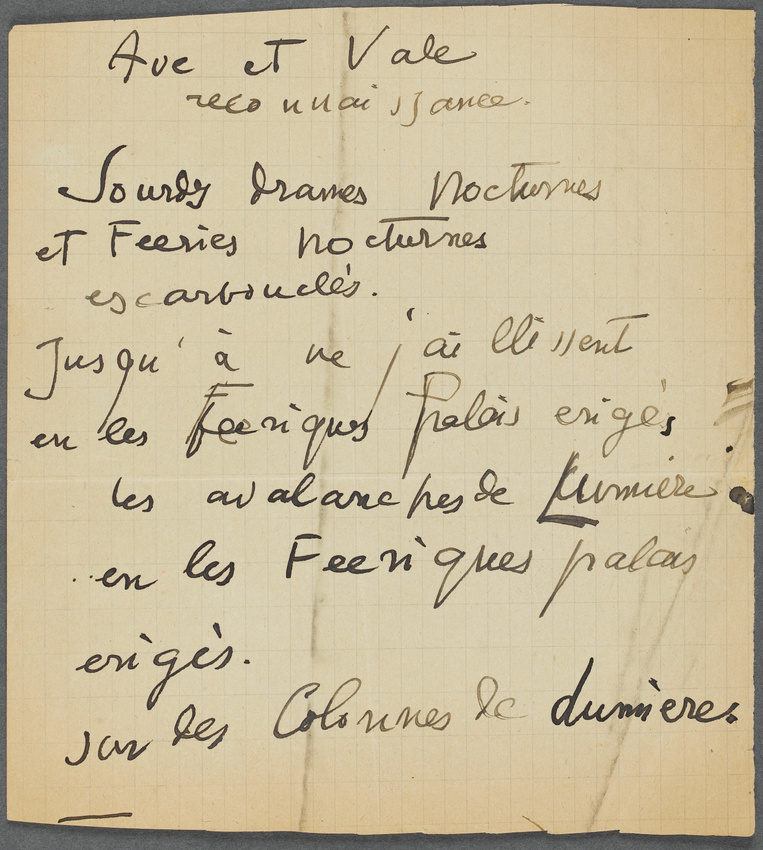 Ave et Vale
reconnaissance.
Sourds drames Nocturnes
et Feeries Nocturnes
escarbouclés.
Jusqu'à ne j'aillissent
en les Feeriques palais erigès
les avalanches de Lumière
..en les Feeriques palais
erigès.
sur des Colonnes de Lumieres.